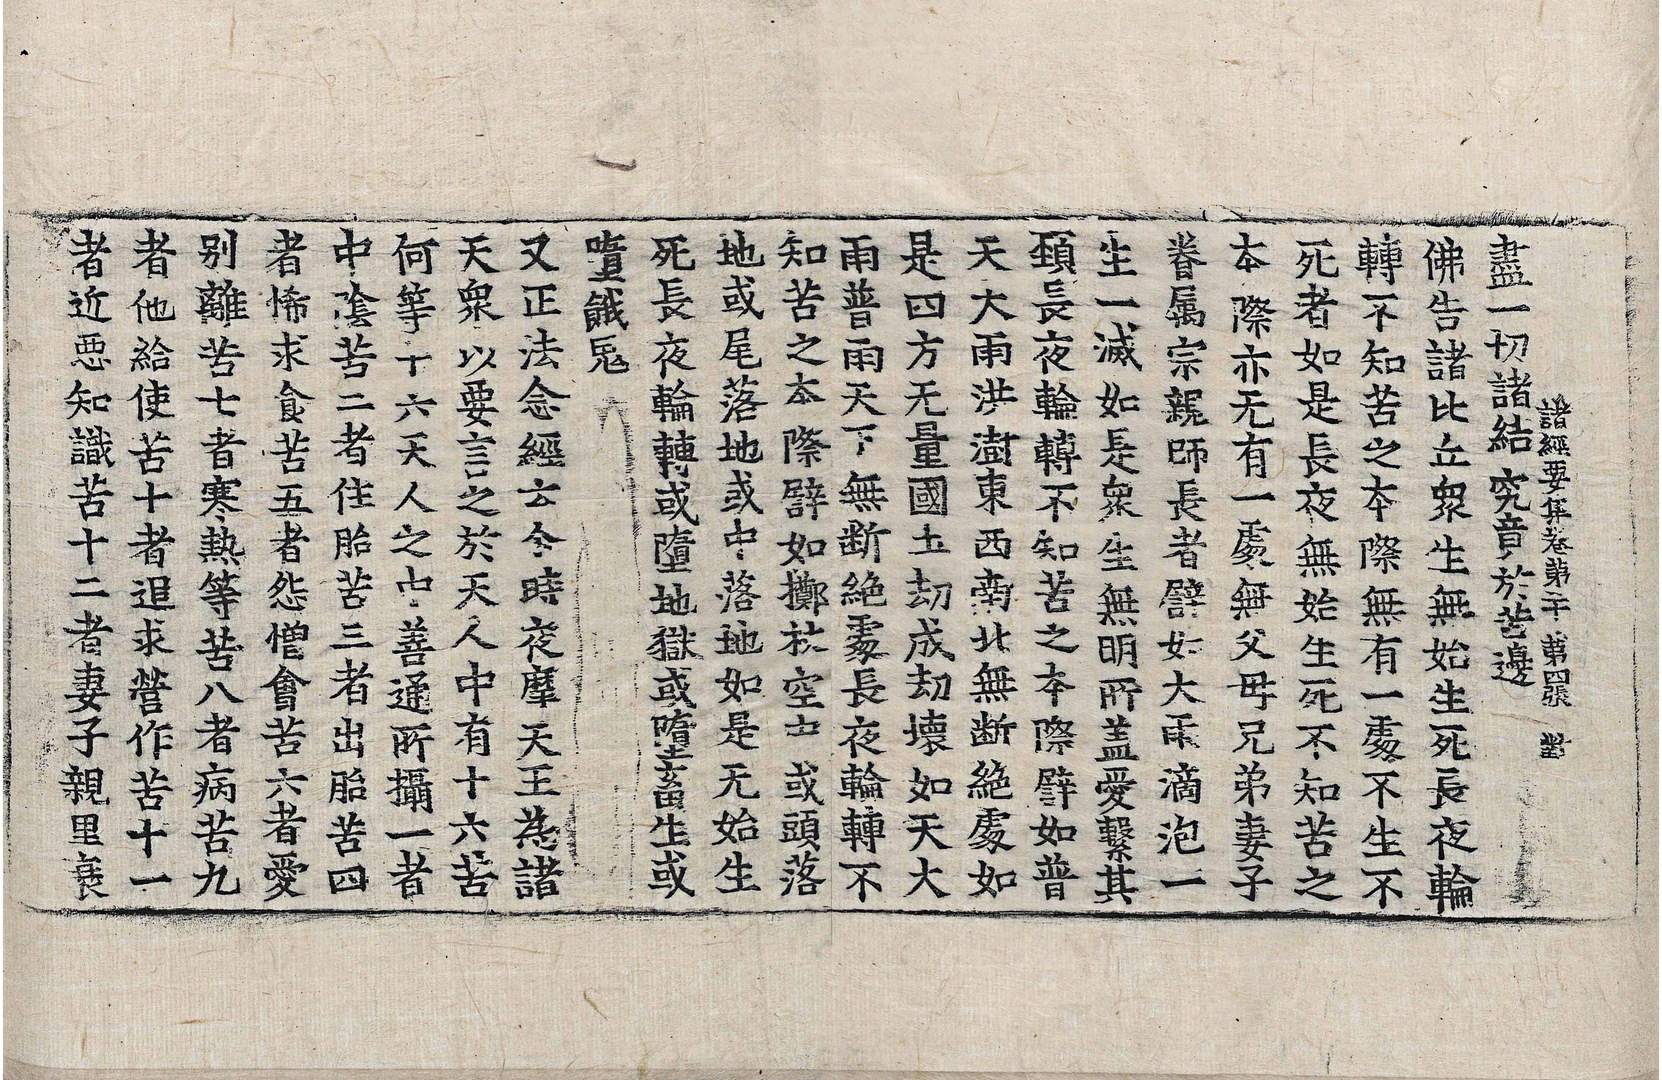 盡一切諸結究竟於苦邊
諸經要集卷第二十 第四張 對
佛告諸比丘衆生無始生死長夜輪
轉不知苦之本際無有一處不生不
死者如是長夜無始生死不知苦之
本際亦无有一處無父母兄弟妻子
眷属宗親師長者譬如大雨滴泡一
生一滅如是衆生無明所盖愛繫其
頚長夜輪轉不知苦之本際譬如普
天大雨洪澍東西南北無断絶處如
是四方无量國土劫成劫壞如天大
雨普雨天下無断絶處長夜輪轉不
知苦之本際譬如擲杖空中或頭落
地或尾落地或中落地如是无始生
死長夜輪轉或墮地獄或墮畜生或
墮餓鬼
又正法念經云今時夜摩天王為諸
天衆以要言之於天人中有十六苦
何等十六天人之中善道所攝一者
中隂苦二者住胎苦三者出胎苦四
者悕求食苦五者怨憎會苦六者愛
别離苦七者寒熱等苦八者病苦九
者他給使苦十者追求營作苦十一
者近惡知識苦十二者妻子親里衰